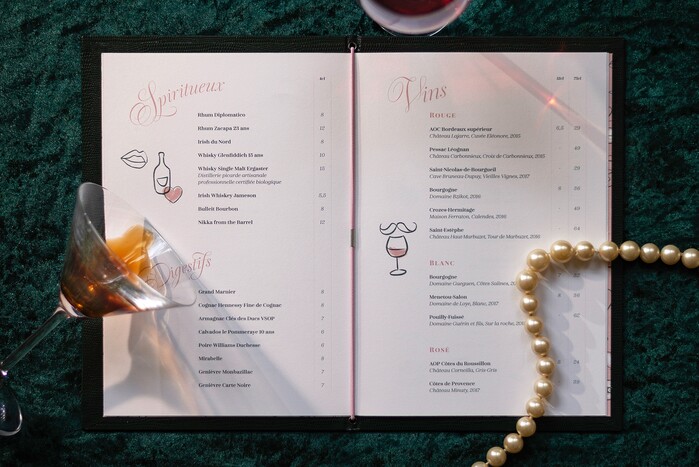 Spiritueux
4cl
Rhum Diplomatico 8
Rhum Zacapa 23 ans 12
Irish du Nord 8
Whisky Glenfiddich 15 ans 10
Whisky Single Malt Ergaster 13
Distillerie picarde artisanale
professionnelle certifiée biologique
Irish Whiskey Jameson 6,5
Bulleit Bourbon 8
Nikka from the Barrel 12
Digestifs
Grand Marnier 8
Cognac Hennessy Fine de Cognac 8
Armagnac Clés des Ducs VSOP 7
Calvados le Pommeraye 10 ans 6
Poire Williams Duchesse 6
Mirabelle 5
Genièvre Monbazillac 7
Genièvre Carte Noire 7
Vins
Rouge
AOC Bordeaux supérieur 5,5 29
Château Lajarre, Cuvée Eléonore, 2015
Pessac Léognan 49
Château Carbonnieux, Croix de Carbonnieux, 2015
Saint-Nicolas-de-Bourgueil 29
Cave Bruneau-Dupuy, Vieilles Vignes, 2017
Bourgogne
Domaine 2016
Crozes-Hermitage 49
Maison Ferraton, Calendes, 2016
Saint-Estèphe 54
Château Haut-Marbuzet, Tour de Marbuzet, 2016
Blanc
Bourgogne
Domaine
Menetou-Salon
Domaine de Loye, Blanc, 2017
Pouilly-Fuissé
Domaine Sur la roche,
Rosé
AOP Côtes du Roussillon
Château Corneilla, Gris Gris
Côtes de Provence
Château Minuty, 2017